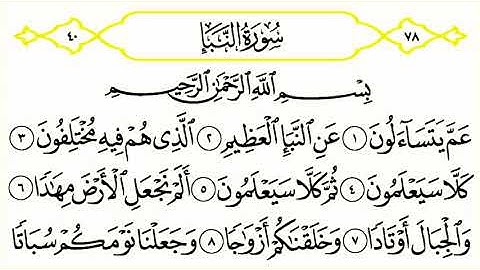 ٧٨ سُورَةُ النَّبَإِ ٤٠
بِسْمِ ٱللَّهِ ٱلرَّحْمَٰنِ ٱلرَّحِيمِ
عَمَّ يَتَسَآءَلُونَ ١ عَنِ ٱلنَّبَإِ ٱلْعَظِيمِ ٢ ٱلَّذِى هُمْ فِيهِ مُخْتَلِفُونَ ٣
كَلَّا سَيَعْلَمُونَ ٤ ثُمَّ كَلَّا سَيَعْلَمُونَ ٥ أَلَمْ نَجْعَلِ ٱلْأَرْضَ مِهَٰدًا ٦
وَٱلْجِبَالَ أَوْتَادًا ٧ وَخَلَقْنَٰكُمْ أَزْوَٰجًا ٨ وَجَعَلْنَا نَوْمَكُمْ سُبَاتًا